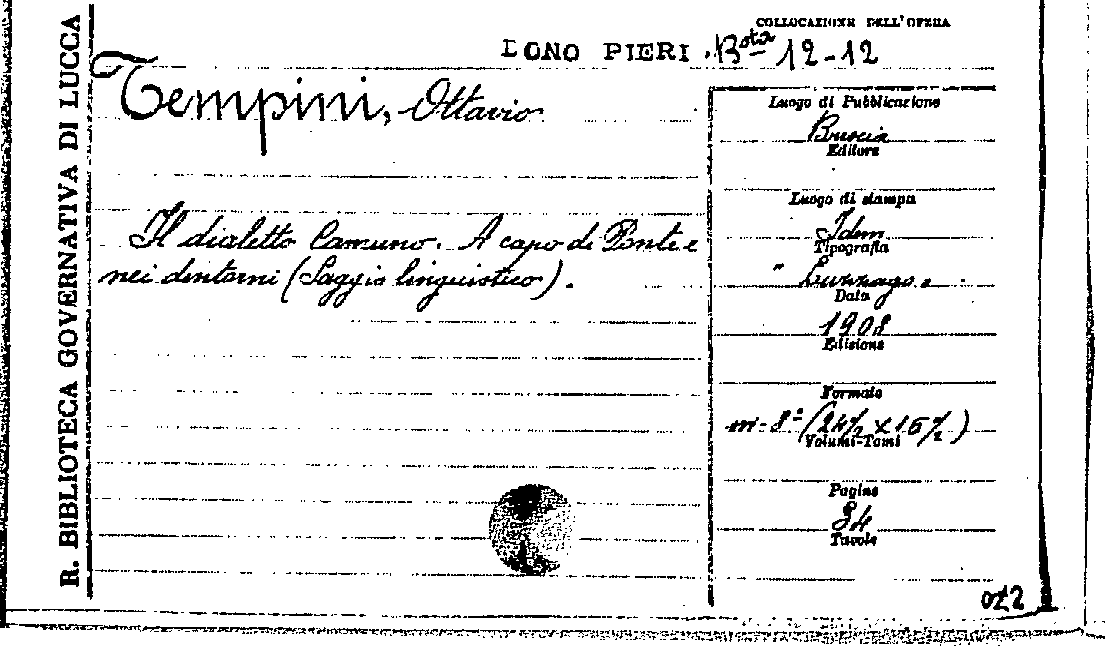 R. BIBLIOTECA GOVERNATIVA DI LUCCA
COLLOCAZIONE DELL'OPERA
DONO PIERI . Bsta 12-12
Tempini, Ottavio
Il dialetto Camuno. A capo di Ponte e
nei dintorni (Saggio linguistico).
Luogo di Pubblicazione
Brescia
Editore
Luogo di stampa
Idem
Tipografia
" Luzzago "
Data
1908
Edizione
Formato
in-8° (24½ x 16½)
Volumi-Tomi
Pagine
34
Tavole